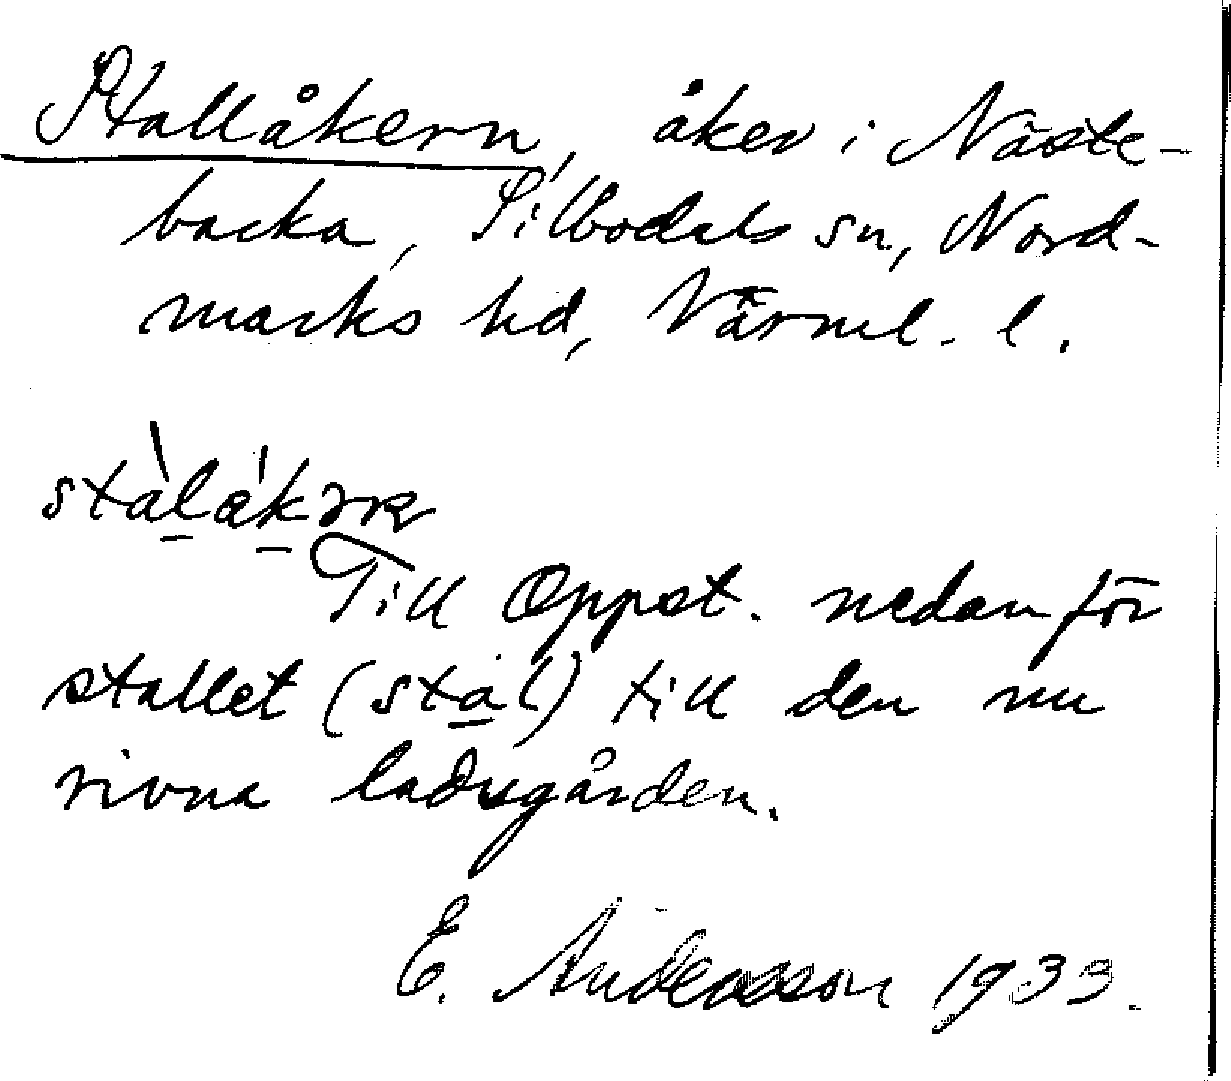 Stallåkern, åker i Näste-
backa, Silbodals sn, Nord-
marks hd, Värml. l.
stàlåkər
Till Oppst. nedanför
stallet (stal) till den nu
rivna ladugården.
E. Andersson 1933.